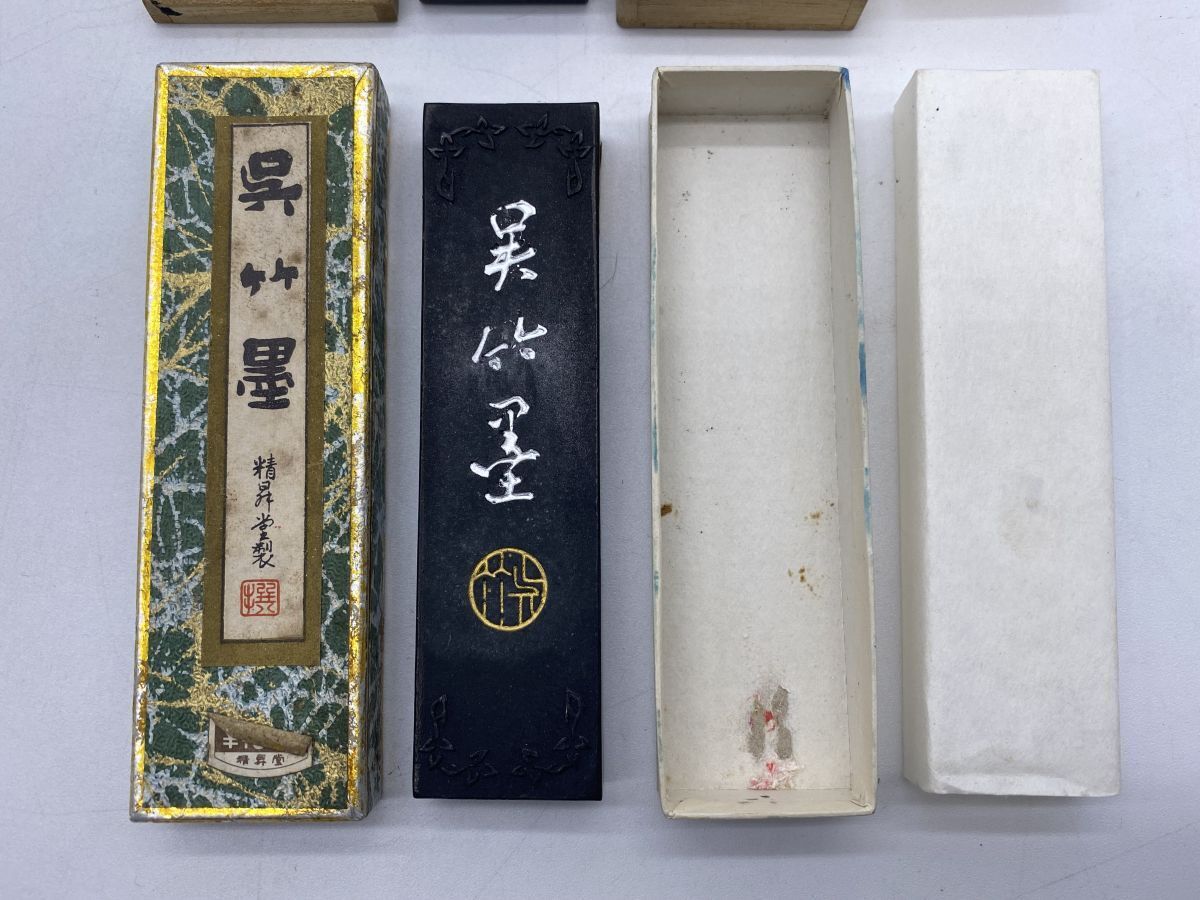 呉竹墨
精昇堂製
撰
精昇堂
呉竹墨